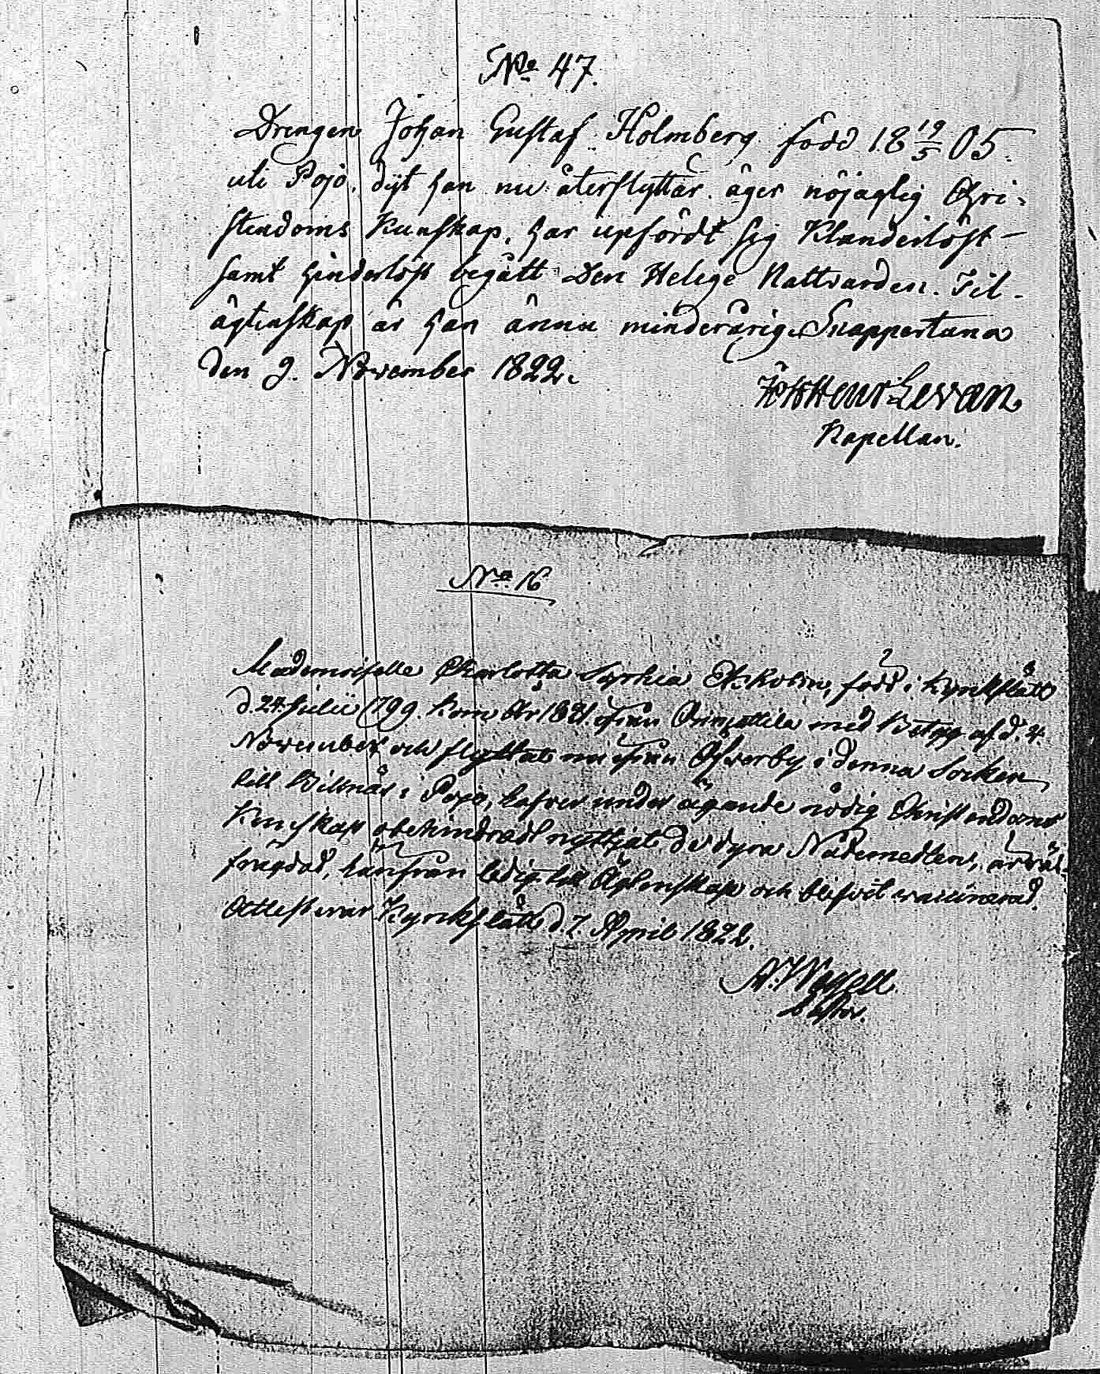 No 47.
Drengen Johan Gustaf Holmberg född 18 19/5 05.
uti Pojo, dijt han nu återflyttar, äger nöjaglig Chri-
stendoms Kunskap, har upfördt sig Klanderlöst –
samt hinderlöst begått Den Helige Nattvarden. Til
ägtenskap är han ännu minderårig. Snappertuna
den 9. November 1822.
Levan
Kapellan.
No 16
Mademoiselle Charlotta Sophia född i Kyrckslätt
d. 24 Julii 1799. kom År 1821 ifrån med Betyg af d. 4.
November och flyttat nu ifrån Öfverby i denna Socken
till Billnäs i Pojo, hafver under ägande nödig Christendoms
Kunskap obehindradt nyttjat de dyra Nådemedlen, är väl-
frägdad, härifrån ledig till Ägtenskap och blifvit vaccinerad.
Attesterar Kyrckslätt d. 7. April 1822.